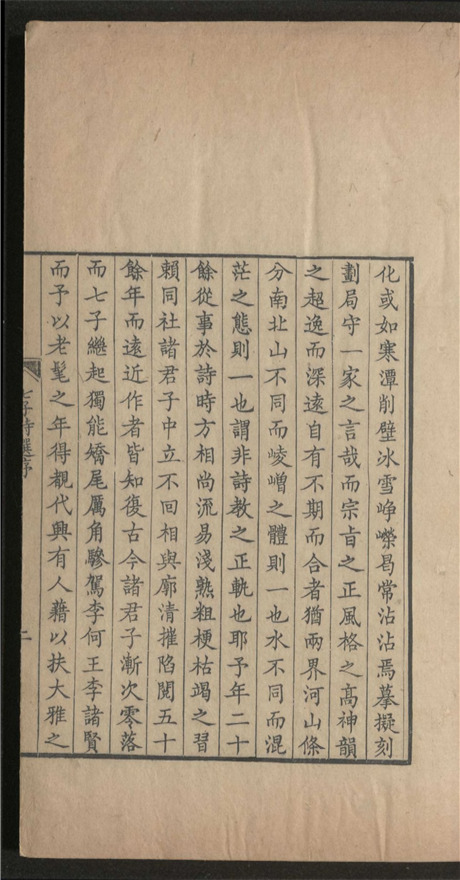 化或如寒潭削壁冰雪崢嶸曷常沾沾焉摹擬刻
劃局守一家之言哉而宗旨之正風格之高神韻
之超逸而深遠自有不期而合者猶兩界河山條
分南北山不同而崚嶒之體則一也水不同而混
茫之態則一也謂非詩教之正軌也耶予年二十
餘從事於詩時方相尚流易淺熟粗梗枯竭之習
賴同社諸君子中立不回相與廓清摧陷閱五十
餘年而遠近作者皆知復古今諸君子漸次零落
而七子繼起獨能矯尾厲角驂駕李何王李諸賢
而予以老髦之年得覩代興有人藉以扶大雅之
七子詩選序
二